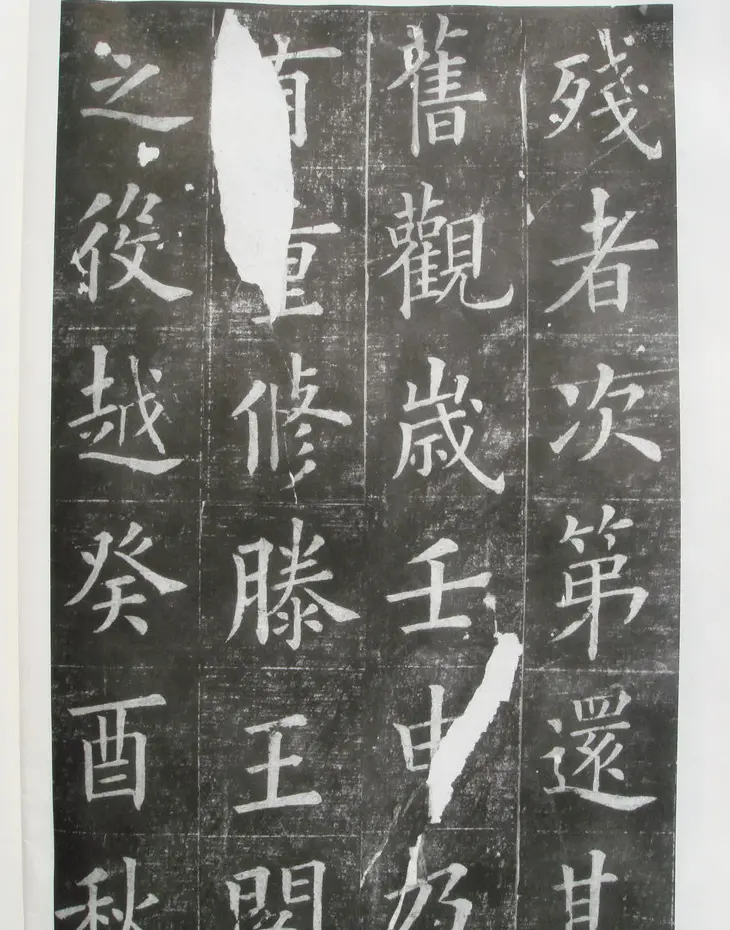 殘者次第還其
舊觀歲壬申乃
有重修滕王閣
之役越癸酉秋